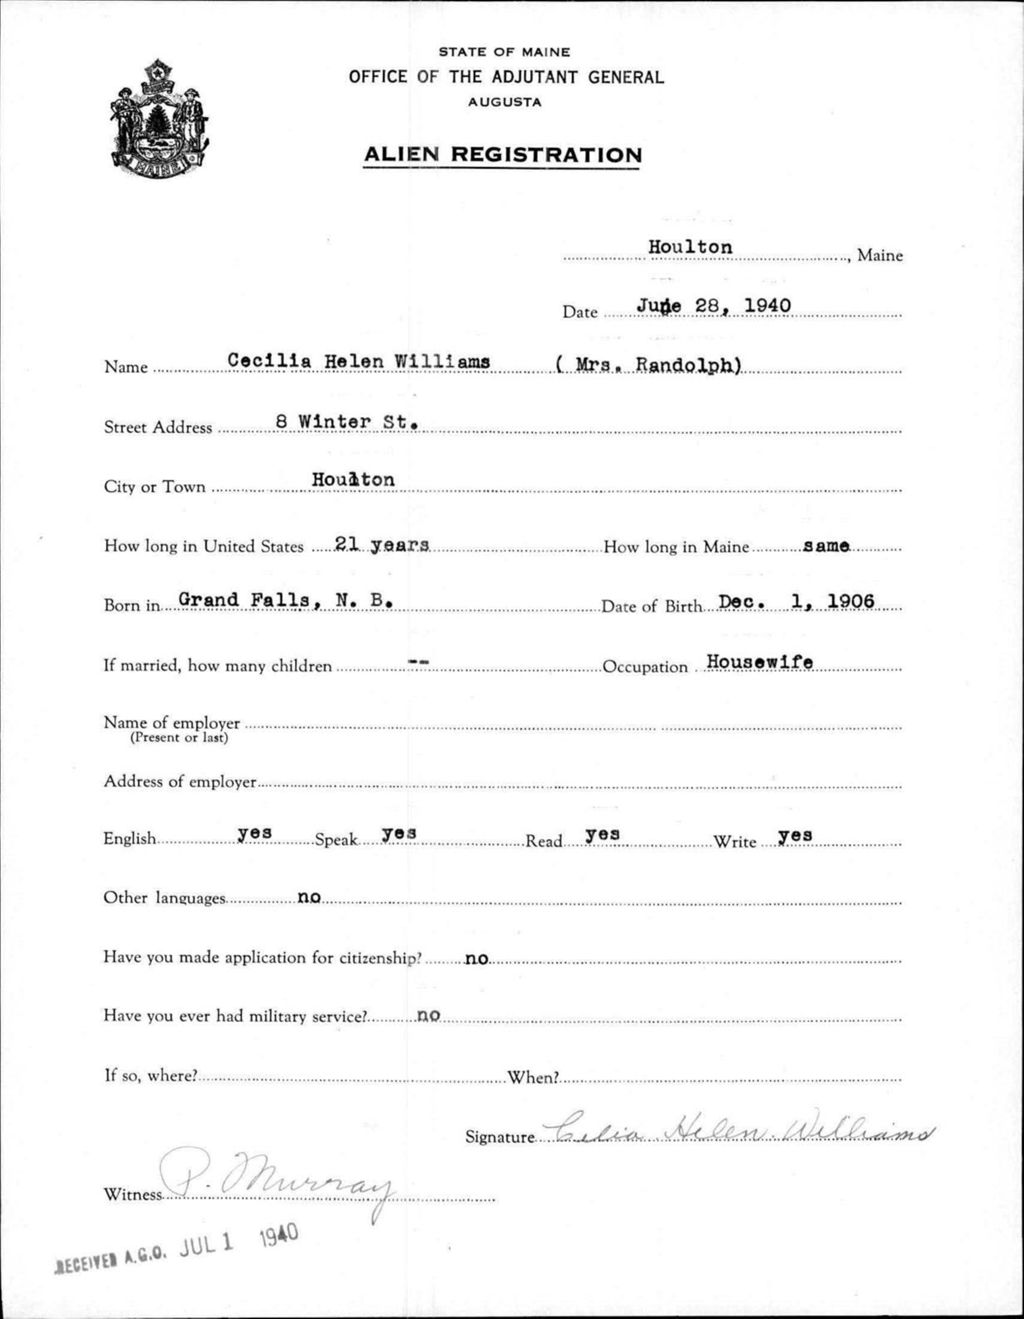 STATE OF MAINE
OFFICE OF THE ADJUTANT GENERAL
AUGUSTA
ALIEN REGISTRATION
MAINE
Houlton, Maine
Date June 28, 1940
Name Cecilia Helen Williams ( Mrs. Randolph)
Street Address 8 Winter St.
City or Town Houlton
How long in United States 21 years How long in Maine same
Born in Grand Falls, N. B. Date of Birth Dec. 1, 1906
If married, how many children -- Occupation Housewife
Name of employer
(Present or last)
Address of employer
English yes Speak yes Read yes Write yes
Other languages no
Have you made application for citizenship? no
Have you ever had military service? no
If so, where? When?
Signature Celia Helen Williams
Witness P. Murray
RECEIVED A.G.O. JUL 1 1940